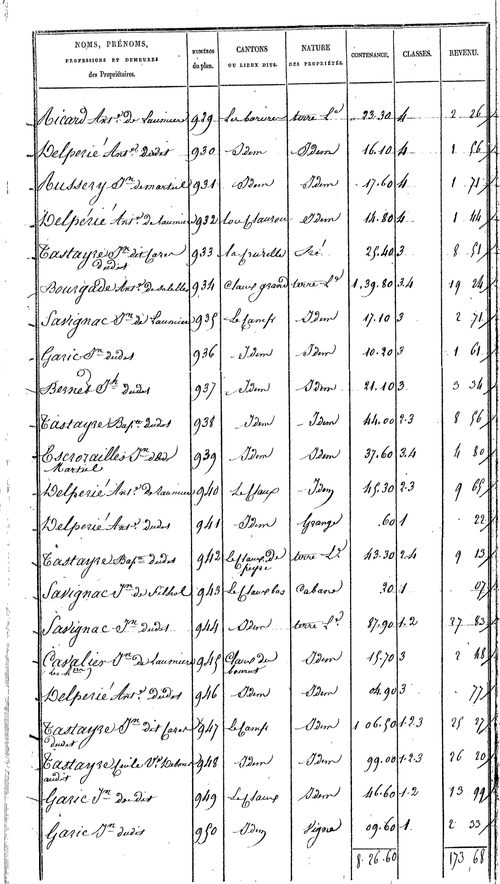 NOMS, PRÉNOMS, PROFESSIONS ET DEMEURES des Propriétaires. NUMÉROS du plan. CANTONS OU LIEUX DITS. NATURE DES PROPRIÉTÉS. CONTENANCE. CLASSES. REVENU.
Ricard Ant.e de Laumiere 929 terre L.d 23.30 4 2 26
Delperié Ant.e dudit 930 Idem Idem 16.10 4 1 56
Russery J.n de martiel 931 Idem Idem 17.60 4 1 71
Delpérié Ant.e de laumiere 932 Idem 14.80 4 1 44
Tastayre J.n dit 933 25.40 3 8 51
dudit
Bourgade Ant.e de 934 Claux grand terre L.d 1.39.80 3.4 19 24
Savignac J.n de Laumiere 935 Le camp Idem 17.10 3 2 71
Garic J.n dudit 936 Idem Idem 10.20 3 1 61
Bernet J.h dudit 937 Idem Idem 21.10 3 3 34
Tastayre Bap.te dudit 938 Idem Idem 44.00 2.3 8 56
Escrozailles J.n 939 Idem Idem 37.60 3.4 4 80
Martiel
Delperié Ant.e de laumiere 940 Le Claux Idem 45.30 2.3 9 65
Delperié Ant.e dudit 941 Idem Grange .60 1 22
Tastayre Bap.te dudit 942 Le claux de terre L.d 43.30 2.4 9 13
peyre
Savignac J.n de Filhol 943 Le Claux bas Cabane .30 1 07
Savignac J.n dudit 944 Idem terre L.d 87.90 1.2 37 83
Cavalier J.n de laumiere 945 Claux du Idem 15.70 3 2 48
Delperié Ant.e dudit 946 Idem Idem 04.90 3 77
Tastayre J.n dit 947 Le camp Idem 1 06.50 1.2.3 25 27
dudit
Tastayre V.e 948 Idem Idem 99.00 1.2.3 26 20
audit
Garic J.n dudit 949 Le Claux Idem 46.60 1.2 13 99
Garic J.n dudit 950 Idem Vigne 09.60 1 2 33
8.26.60 173 68